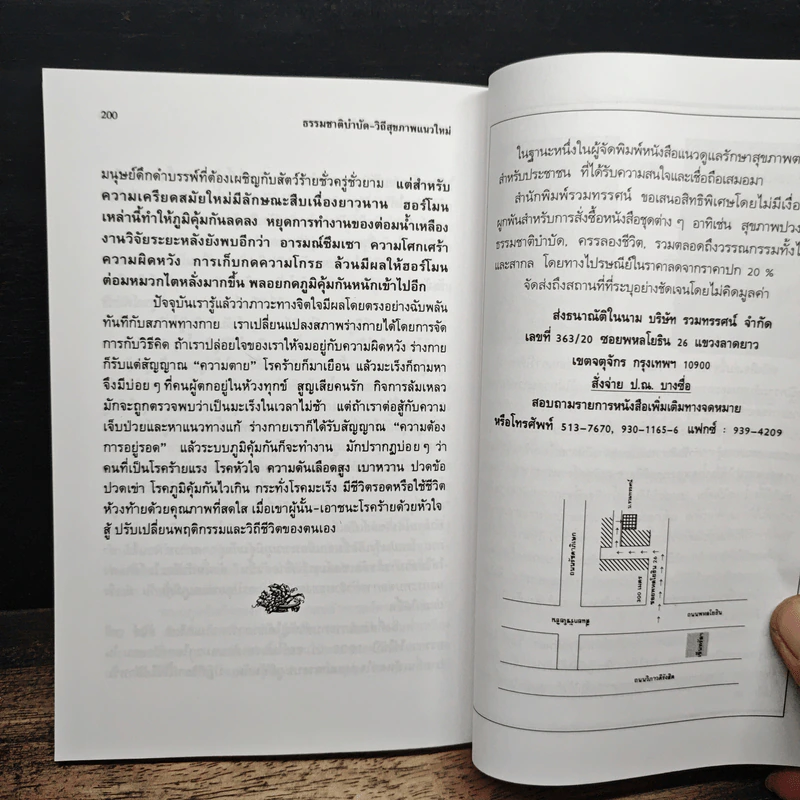 200
ธรรมชาติบำบัด-วิถีสุขภาพแนวใหม่
มนุษย์ดึกดำบรรพ์ที่ต้องเผชิญกับสัตว์ร้ายชั่วครู่ชั่วยาม แต่สำหรับ
ความเครียดสมัยใหม่มีลักษณะสืบเนื่องยาวนาน ฮอร์โมน
เหล่านี้ทำให้ภูมิคุ้มกันลดลง หยุดการทำงานของต่อมน้ำเหลือง
งานวิจัยระยะหลังยังพบอีกว่า อารมณ์ซึมเซา ความโศกเศร้า
ความผิดหวัง การเก็บกดความโกรธ ล้วนมีผลให้ฮอร์โมน
ต่อมหมวกไตหลั่งมากขึ้น พลอยกดภูมิคุ้มกันหนักเข้าไปอีก
ปัจจุบันเรารู้แล้วว่าภาวะทางจิตใจมีผลโดยตรงอย่างฉับพลัน
ทันทีกับสภาพทางกาย เราเปลี่ยนแปลงสภาพร่างกายได้โดยการจัด
การกับวิธีคิด ถ้าเราปล่อยใจของเราให้จมอยู่กับความผิดหวัง ร่างกาย
ก็รับแต่สัญญาณ “ความตาย” โรคร้ายก็มาเยือน แล้วมะเร็งก็ถามหา
จึงมีบ่อยๆ ที่คนผู้ตกอยู่ในห้วงทุกข์ สูญเสียคนรัก กิจการล้มเหลว
มักจะถูกตรวจพบว่าเป็นมะเร็งในเวลาไม่ช้า แต่ถ้าเราต่อสู้กับความ
เจ็บป่วยและหาแนวทางแก้ ร่างกายเราก็ได้รับสัญญาณ “ความต้อง
การอยู่รอด” แล้วระบบภูมิคุ้มกันก็จะทำงาน มักปรากฏบ่อยๆ ว่า
คนที่เป็นโรคร้ายแรง โรคหัวใจ ความดันเลือดสูง เบาหวาน ปวดข้อ
ปวดเข่า โรคภูมิคุ้มกันไวเกิน กระทั่งโรคมะเร็ง มีชีวิตรอดหรือใช้ชีวิต
ห้วงท้ายด้วยคุณภาพที่สดใส เมื่อเขาผู้นั้น-เอาชนะโรคร้ายด้วยหัวใจ
สู้ ปรับเปลี่ยนพฤติกรรมและวิถีชีวิตของตนเอง
ในฐานะหนึ่งในผู้จัดพิมพ์หนังสือแนวดูแลรักษาสุขภาพต
สำหรับประชาชน ที่ได้รับความสนใจและเชื่อถือเสมอมา
สำนักพิมพ์รวมทรรศน์ ขอเสนอสิทธิพิเศษโดยไม่มีเงื่อ
ผูกพันสำหรับการสั่งซื้อหนังสือชุดต่าง ๆ อาทิเช่น สุขภาพปวง
ธรรมชาติบำบัด, ครรลองชีวิต, รวมตลอดถึงวรรณกรรมทั้งไ
และสากล โดยทางไปรษณีย์ในราคาลดจากราคาปก 20 %
จัดส่งถึงสถานที่ที่ระบุอย่างชัดเจนโดยไม่คิดมูลค่า
ส่งธนาณัติในนาม บริษัท รวมทรรศน์ จำกัด
เลขที่ 363/20 ซอยพหลโยธิน 26 แขวงลาดยาว
เขตจตุจักร กรุงเทพฯ 10900
สั่งจ่าย ป.ณ. บางซื่อ
สอบถามรายการหนังสือเพิ่มเติมทางจดหมาย
หรือโทรศัพท์ 513-7670, 930-1165-6 แฟกซ์ : 939-4209
ถนนรัชดาภิเษก
บ.รวมทรรศน์
300 เมตร
ซอยพหลโยธิน 26
ถนนพหลโยธิน
ถนนวิภาวดีรังสิต